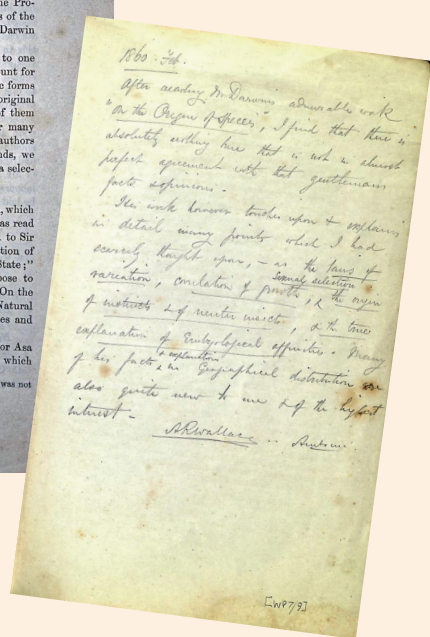 he Pro-
s of the
Darwin
to one
unt for
c forms
original
of them
r many
authors
nds, we
a selec-
, which
as read
to Sir
tion of
State;"
pose to
On the
Natural
es and
or Asa
which
was not
1860. Feb.
After reading Mr Darwin's admirable work
"On the Origin of Species", I find that there is
absolutely nothing here that is not in almost
perfect agreement with that gentlemans
facts & opinions.
His work however touches upon & explains
in detail many points which I had
scarcely thought upon, - as the laws of
variation, correlation of growth, sexual selection, & the origin
of instincts & of neuter insects, & the true
explanation of Embryological affinities. Many
of his facts & explanations in Geographical distribution are
also quite new to me & of the highest
interest -
ARWallace
[WP7/9]